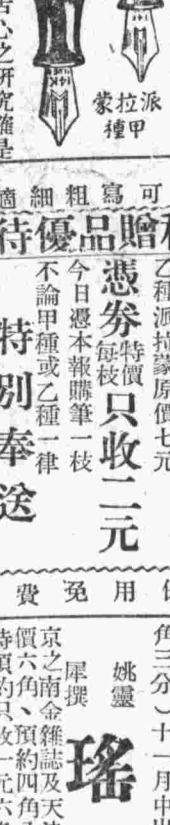 苦心之研究確是
派拉蒙
甲種
可寫粗細適
贈品優待
乙種派拉蒙原價七元
憑券特價每枝只收二元
今日憑本報購筆一枝
不論甲種或乙種一律
特別奉送
用免費
角三分）十一月中出
姚靈犀撰
瑤
京之南金雜誌及天津
價六角、預約四角